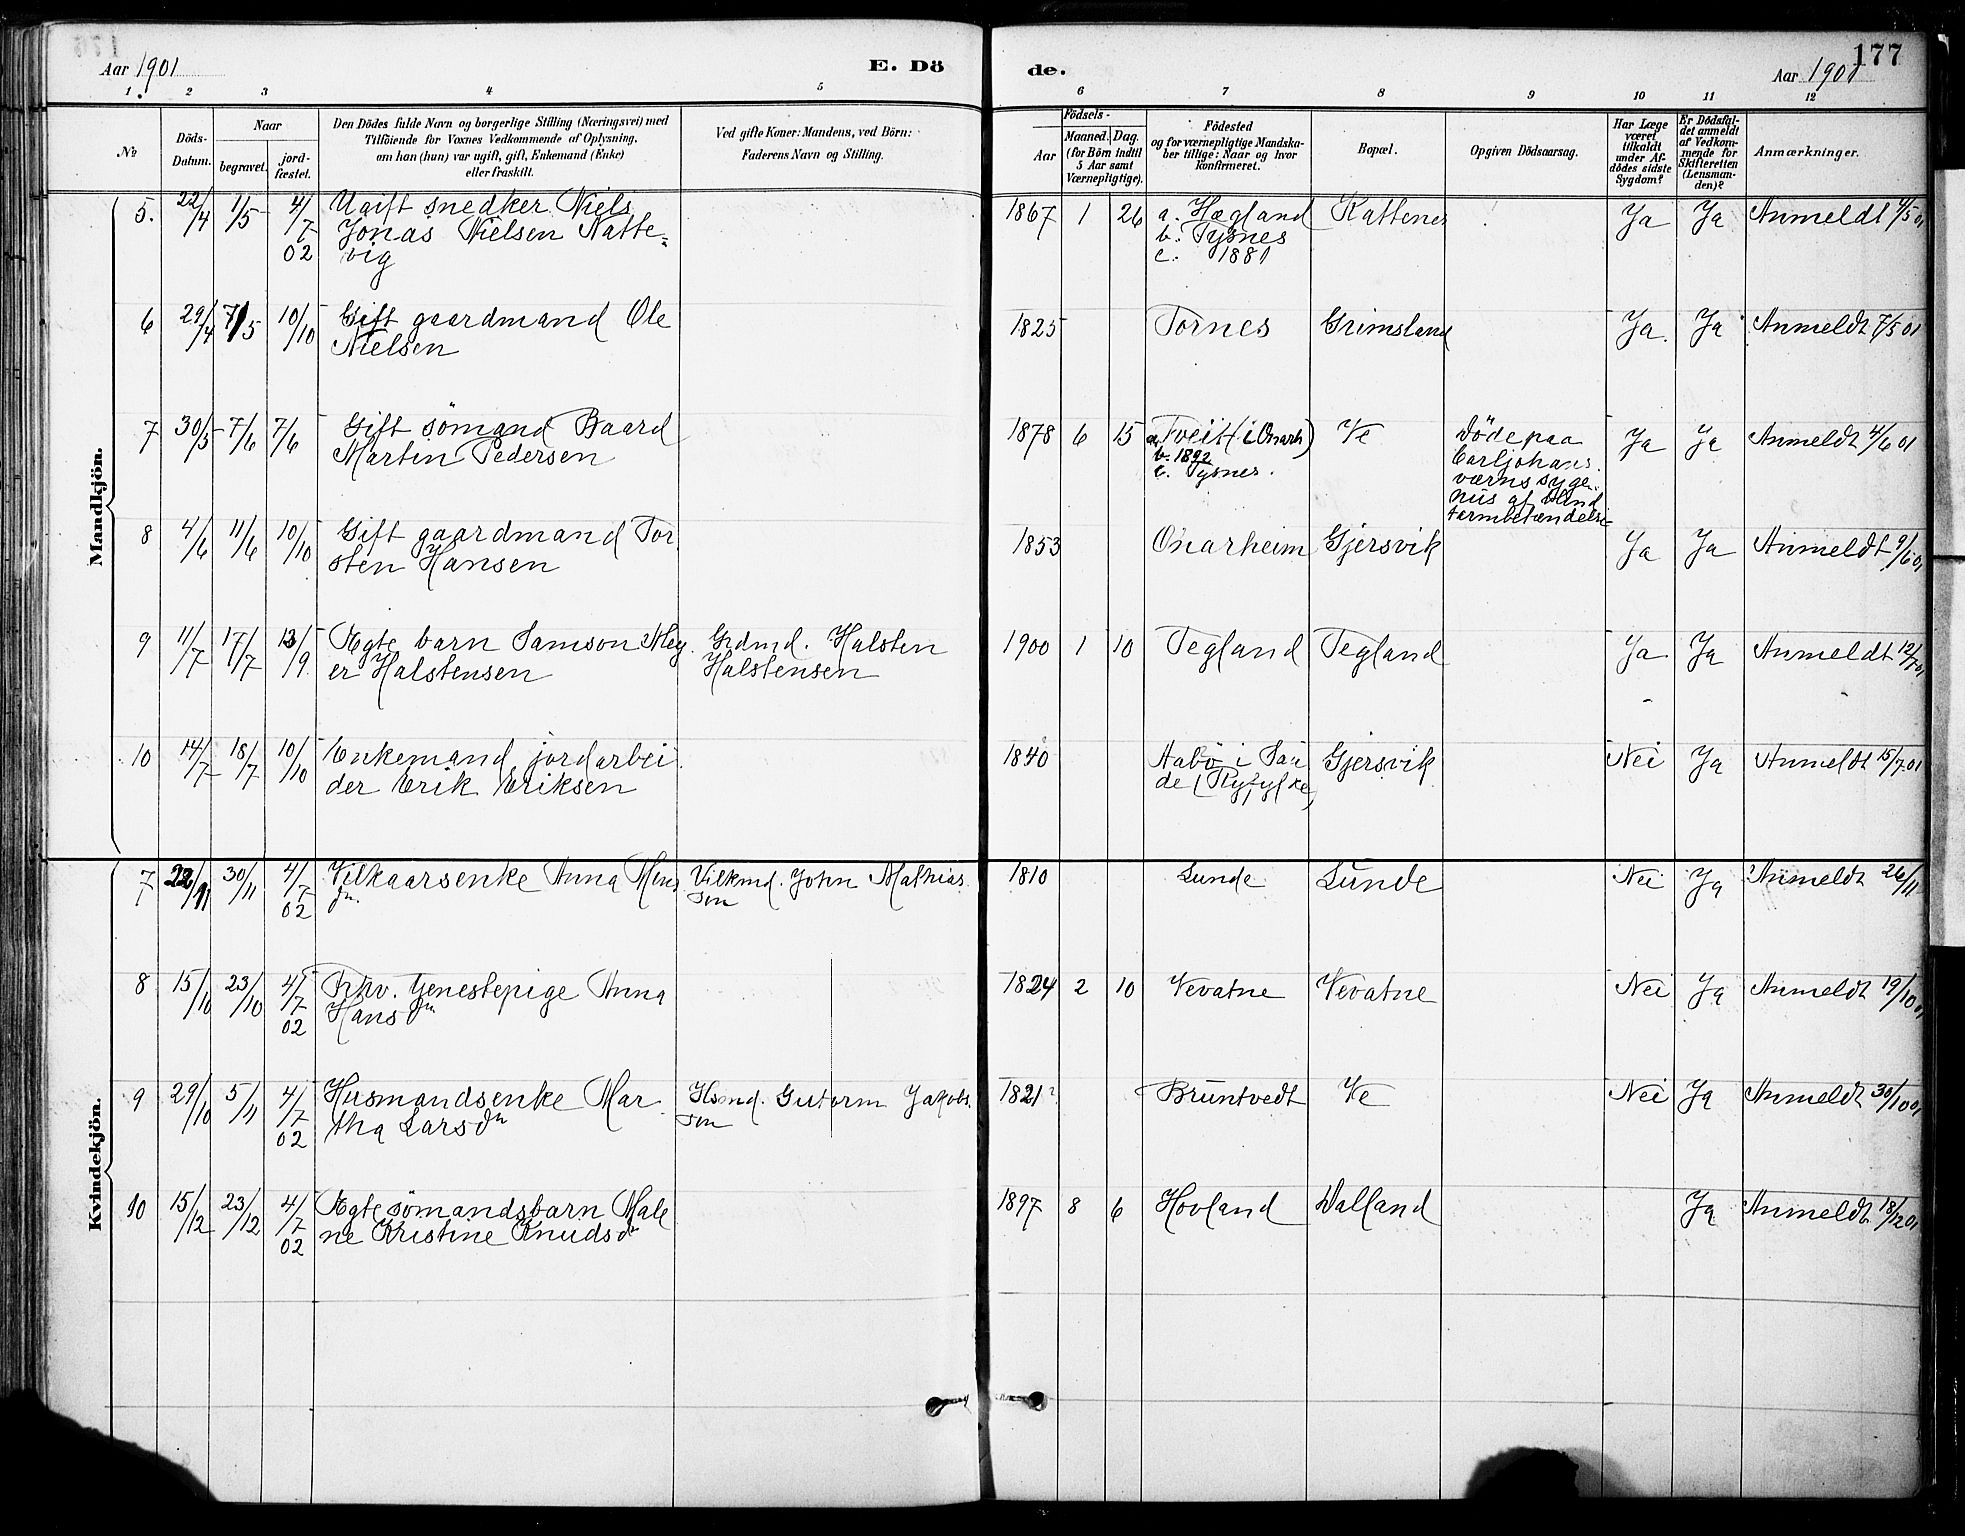 Aar 1901
E. Dö
de.
Aar 1901
177
1.
2
3
4
5
6
7
8
9
10
11
12
№
Döds-
Datum.
Naar
begravet.
jord-
fæstet.
Den Dödes fulde Navn og borgerlige Stilling (Næringsvei) med
Tilföiende for Voxnes Vedkommende af Oplysning,
om han (hun) var ugift, gift, Enkemand (Enke)
eller fraskilt.
Ved gifte Koner: Mandens, ved Börn:
Faderens Navn og Stilling.
Födsels-
Aar
Maaned.
Dag.
(for Börn indtil
5 Aar samt
Værnepligtige).
Födested
og for værnepligtige Mandska-
ber tillige: Naar og hvor
konfirmeret.
Bopæl.
Opgiven Dödsaarsag.
Har Læge
været
tilkaldt
under Af-
dödes sidste
Sygdom?
Er Dödsfal-
det anmeldt
af Vedkom-
mende for
Skifteretten
(Lensman-
den)?
Anmærkninger.
Mandkjön.
5. 22/4 1/5 4/7 02 Ugift snedker Niels
Jonas Nielsen Natte-
vig
1867 1 26 a. Hægland Kattenes Ja Ja Anmeldt 4/5 01
b. Tysnes
c. 1881
6 29/4 7/5 10/10 Gift gaardmand Ole
Nielsen
1825 Tornes Grimsland Ja. Ja Anmeldt 7/5 01
7 30/5 7/6 7/6 Gift sömand Baard
Martin Pedersen
1878 6 15 a. Tveit (i Onarh) Ve Döde paa Ja Ja Anmeldt 4/6 01
b. 1892
c. Tysnes.
Carljohans
værns syge-
hus af blind
tarmbetændelse
8 4/6 11/6 10/10 Gift gaardmand Tor
sten Hansen
1853 Onarheim Gjersvik Ja Ja Anmeldt 9/6 01
9 11/7 17/7 13/9 Ægte barn Samson Mey Grdmd. Halsten
er Halstensen Halstensen
1900 1 10 Tegland Tegland Ja Ja Anmeldt 12/7 01
10 14/7 18/7 10/10 Enkemand jordarbei
der Erik Eriksen
1840 Aabö i Sau Gjersvik Nei Ja Anmeldt 15/7 01
de (Ryfylke)
Kvindekjön.
7 22/11 30/11 4/7 02 Vilkaarsenke Anna Mons Vilkmd. John Mathias
dn. son
1810 Lunde Lunde Nei Ja Anmeldt 26/11
8 15/10 23/10 4/7 02 Fhv. tjenestepige Anna
Hansdn
1824 2 10 Vevatne Vevatne Nei Ja Anmeldt 19/10 01
9 29/10 5/11 4/7 02 Husmandsenke Mar Hsmd. Gutorm Jakobs
tha Larsdn son
1821 Bruntvedt Ve Nei Ja Anmeldt 30/10 01
10 15/12 23/12 4/7 02 Ægte sömandsbarn Male
ne Kristine Knudsdr
1897 8 6 Hovland Valland Ja Anmeldt 18/12 01